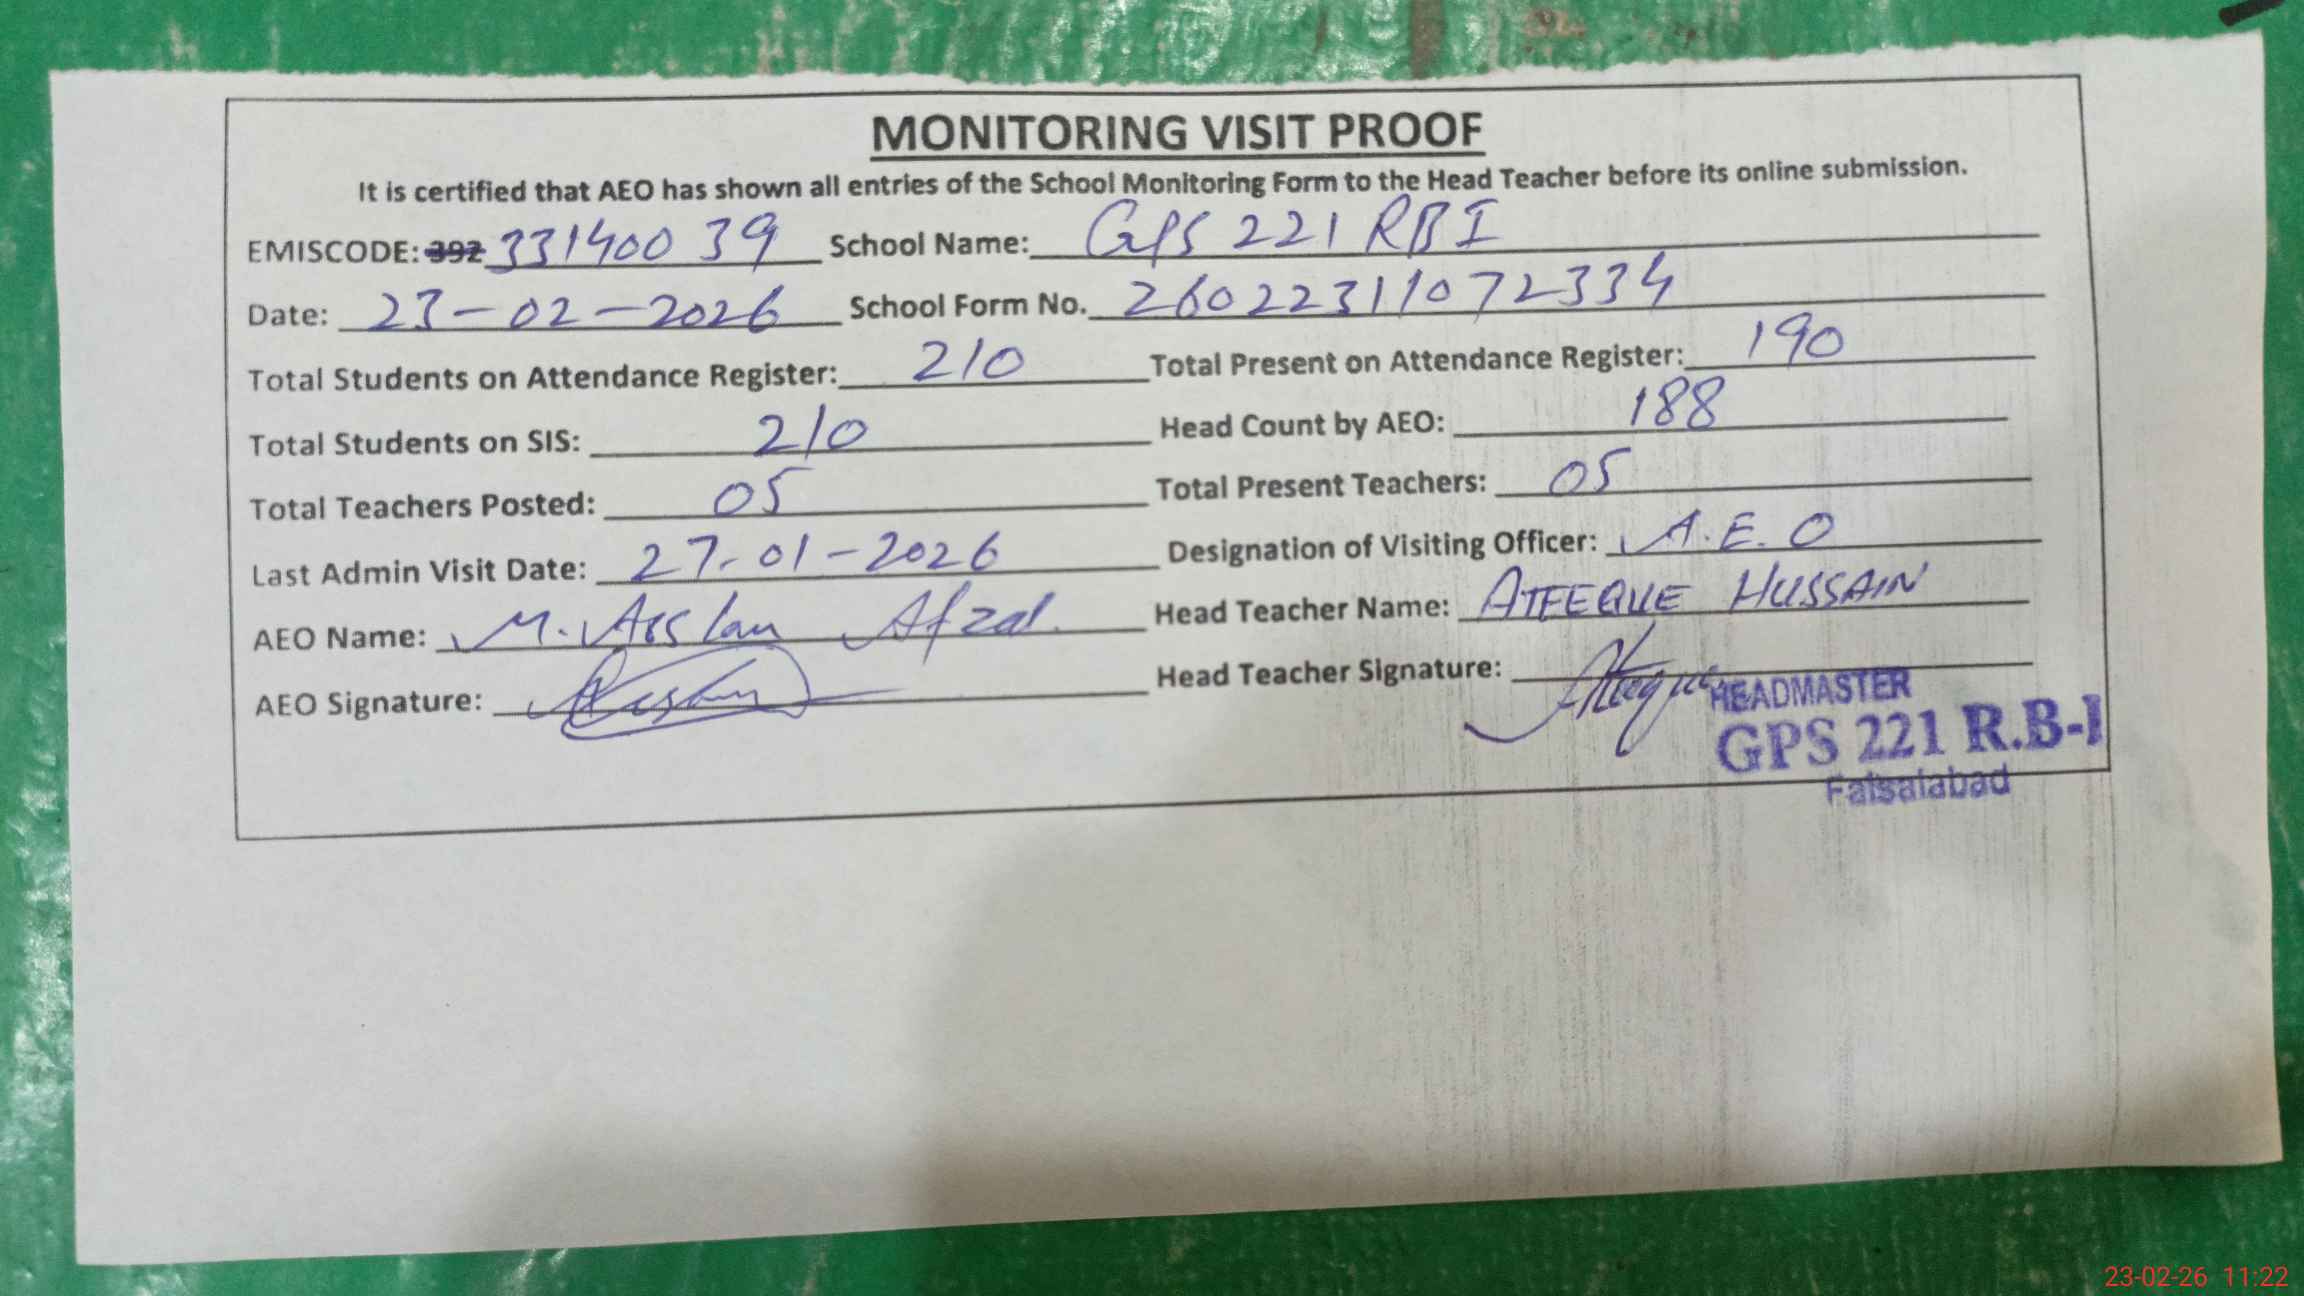 MONITORING VISIT PROOF
It is certified that AEO has shown all entries of the School Monitoring Form to the Head Teacher before its online submission.
EMISCODE: 392 33140039 School Name: GPS 221 RB I
Date: 23-02-2026 School Form No. 26022311072334
Total Students on Attendance Register: 210 Total Present on Attendance Register: 190
Total Students on SIS: 210 Head Count by AEO: 188
Total Teachers Posted: 05 Total Present Teachers: 05
Last Admin Visit Date: 27-01-2026 Designation of Visiting Officer: A.E.O
AEO Name: M. Arslan Afzal. Head Teacher Name: ATEEQUE HUSSAIN
AEO Signature: Head Teacher Signature: Ateeque
HEADMASTER
GPS 221 R.B-I
Faisalabad
23-02-26 11:22